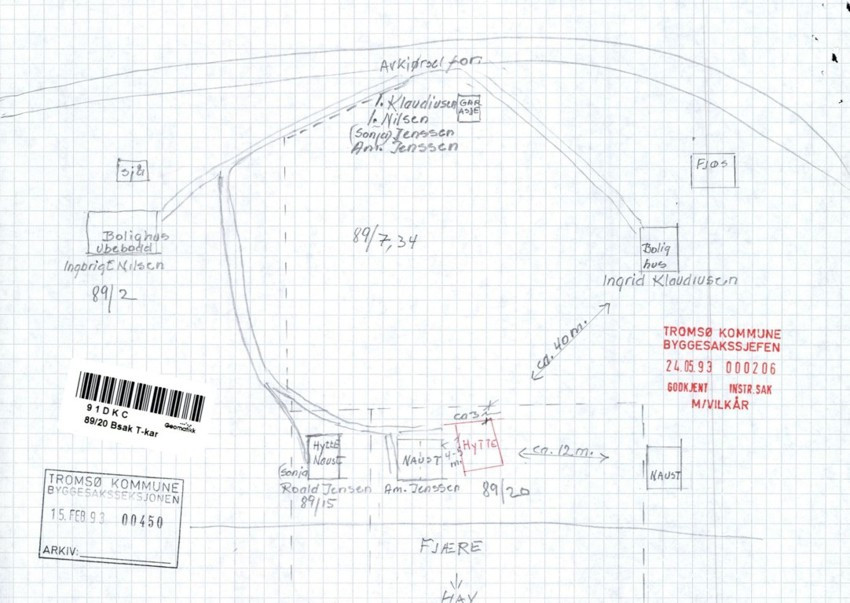 Avkjørsel for:
I. Klaudiusen
I. Nilsen
(Sonja) Jenssen
Am. Jenssen
GAR
ASJE
Sjå
Fjøs
Bolighus
ubebodd
Ingbrigt E Nilsen
89/2
89/7, 34
Bolig
hus
Ingrid Klaudiusen
ca. 40 m.
TROMSØ KOMMUNE
BYGGESAKSSJEFEN
24.05.93 000206
GODKJENT INSTR.SAK
M/VILKÅR
91DKC
Geomatikk
89/20 Bsak T-kar
ca 3
HYTTE
HYTTE
NAUST
NAUST
4-5
m.
ca. 12 m.
NAUST
(Sonja)
Roald Jensen
89/15
Am. Jenssen
89/20
TROMSØ KOMMUNE
BYGGESAKSSEKSJONEN
15. FEB 93 00450
ARKIV:
FJÆRE
HAV